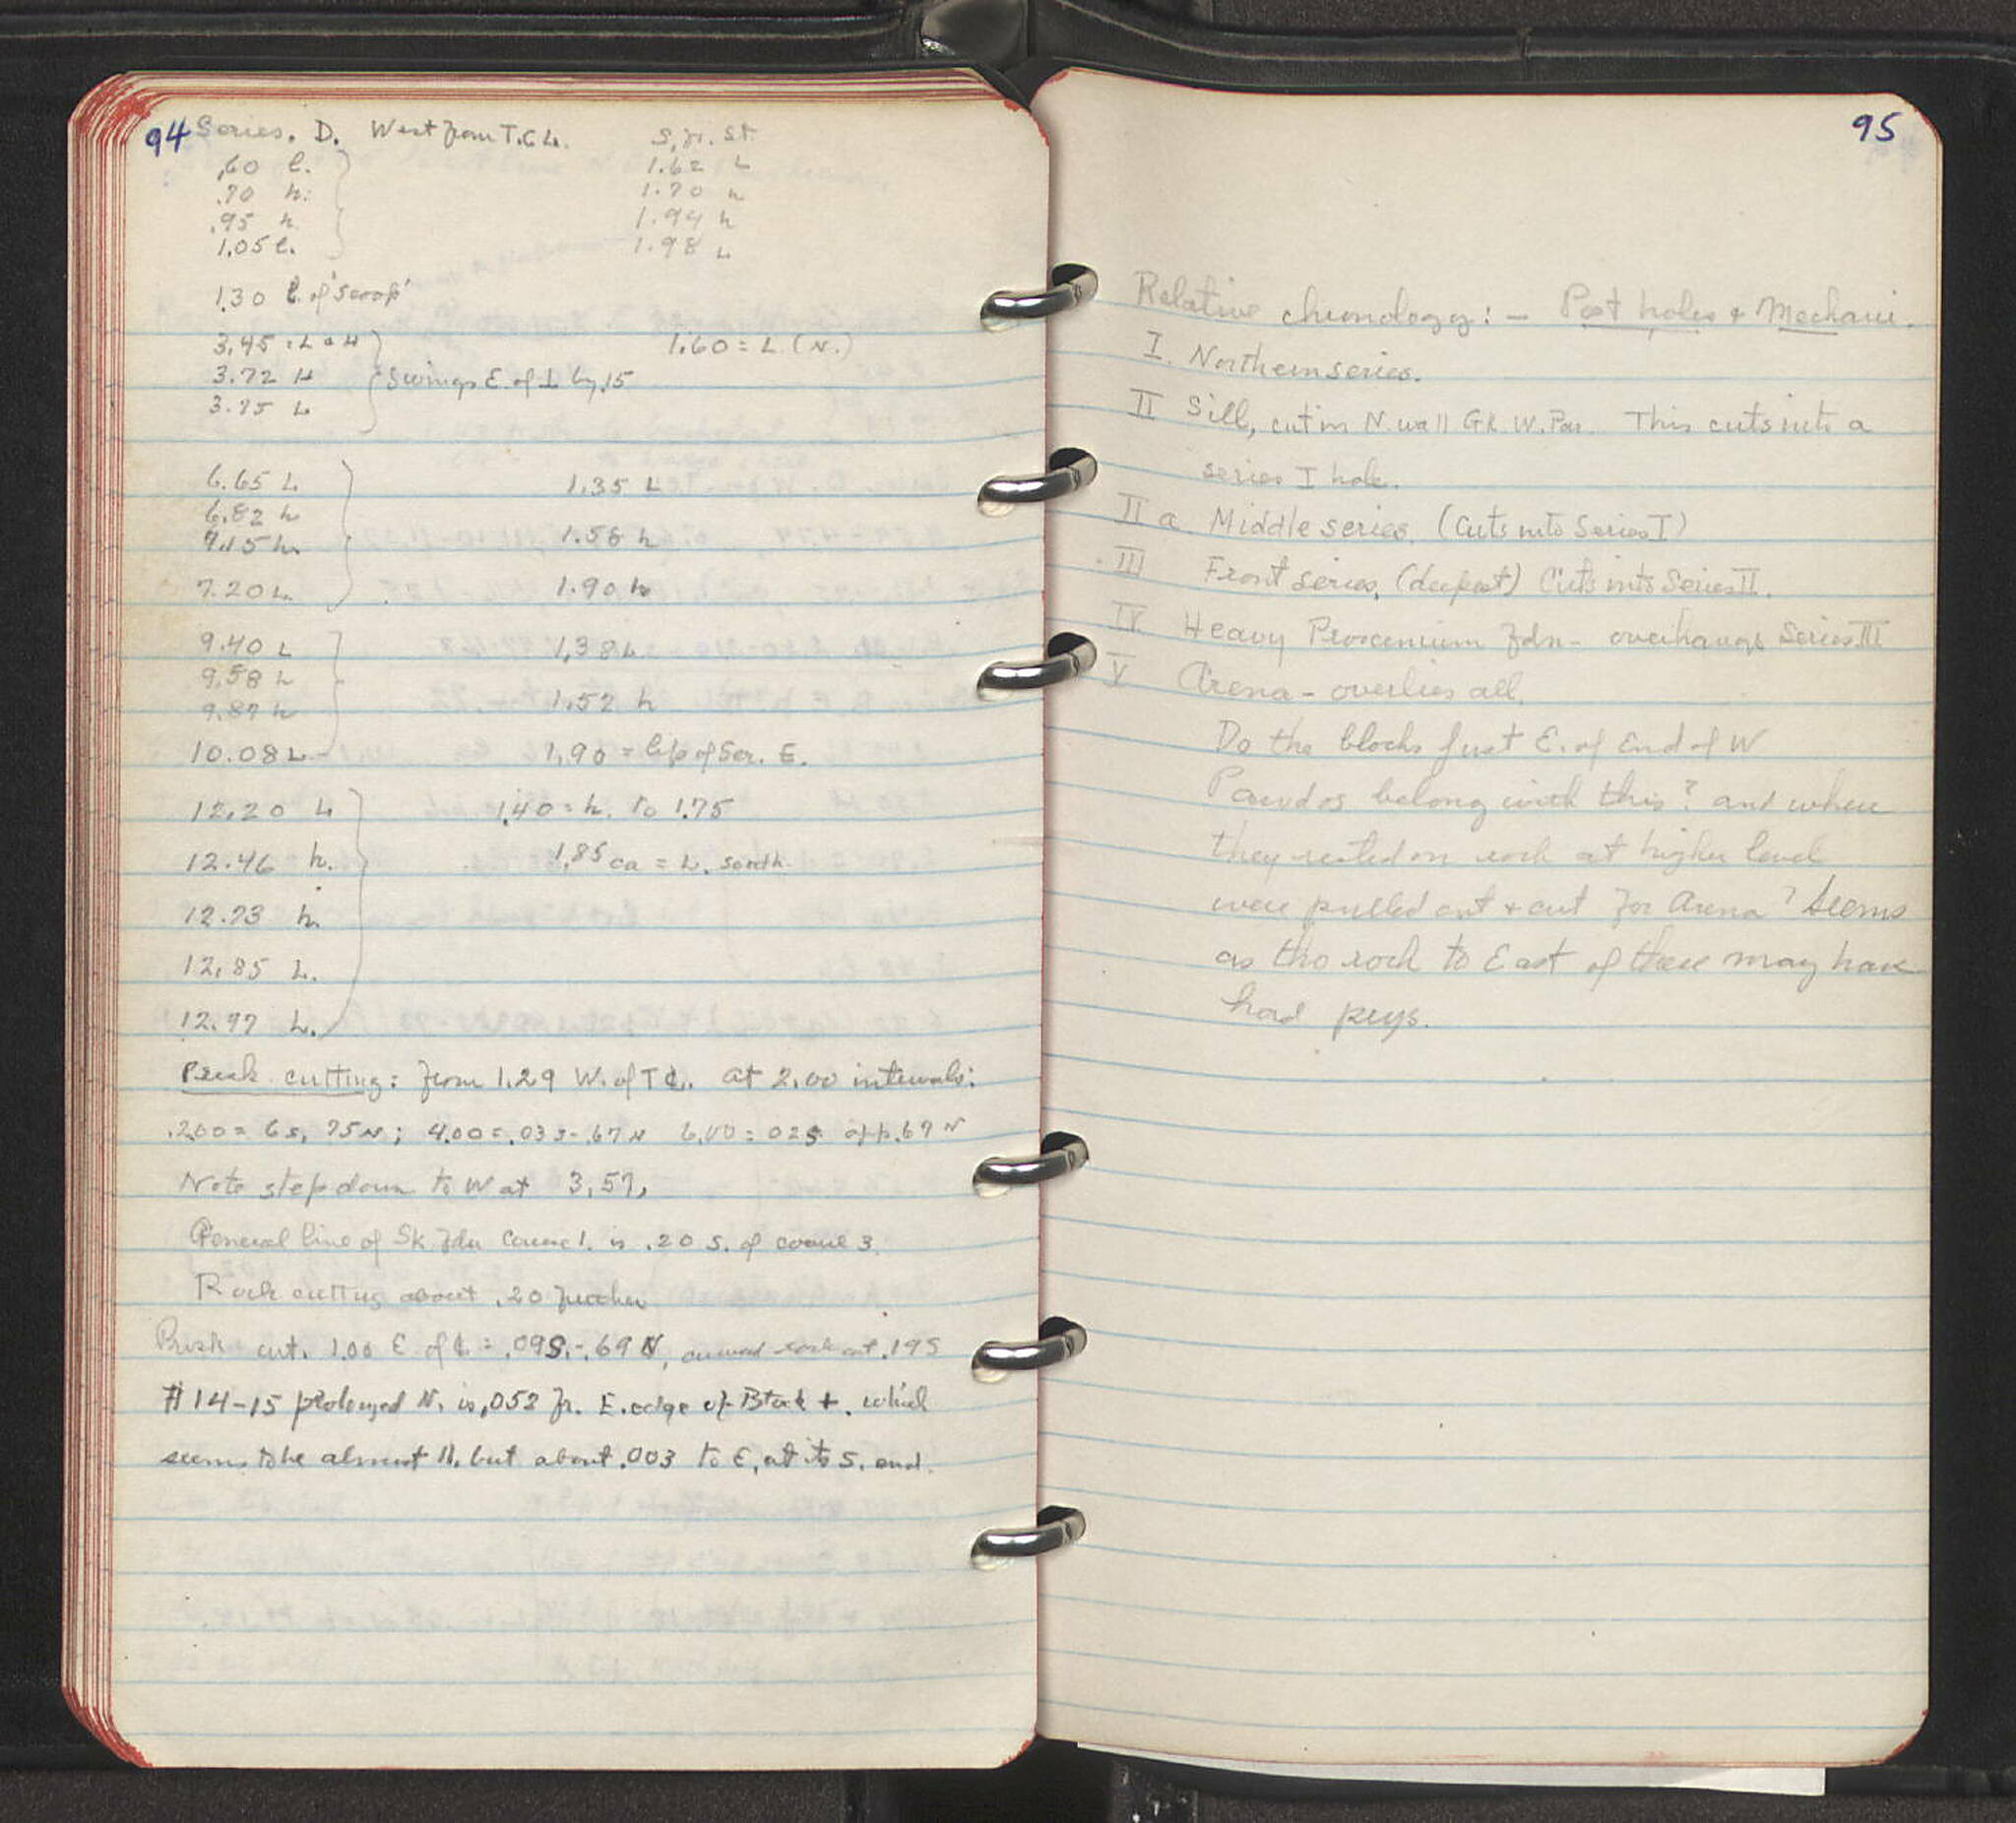 94 Series. D. West from T.C L. S. fr. St.
.60 l. 1.62 L
.70 h. 1.70 h
.95 h 1.94 h
1.05 l. 1.98 L
1.30 l. of 'scoop'
3.45 : L & H 1.60 = L (N.)
3.72 H Swings E. of ⊥ by .15
3.75 L
6.65 L 1.35 L
6.82 h
7.15 h. 1.56 h
7.20 L. 1.90 h
9.40 L 1.38 L
9.58 h
9.87 h 1.52 h
10.08 L 1.90 = lip of Ser. E.
12.20 L 1.40 = h. to 1.75
12.46 h. 1.85 ca = L. south.
12.73 h.
12.85 L.
12.97 L.
cutting: from 1.29 W. of T ℄. at 2.00 intervals:
.75 N; 4.00 = .03 S - .67 N 6.00 = .02 S .67 N
Note step down to W at 3.57,
General line of Sk fdn course 1. is .20 S. of course 3.
Rock cutting about .20 further
cut. 1.00 E of ℄ = .09 S. - .69 N, rock cut .19 S
# 14-15 prolonged N. is .052 fr. E. edge of Block +. which
seems to be almost ||. but about .003 to E, at its S. end.
95
Relative chronology: - Post holes & Mechani.
I. Northern series.
II Sill, cut in N. wall Gk W. Par. This cuts into a
series I hole.
II a Middle series. (Cuts into Series I)
III Front series, (deepest) Cuts into Series II.
IV Heavy Proscenium fdn - overhangs Series III
V Arena - overlies all.
Do the blocks just E. of End of W
Parodos belong with this? and where
they rested on rock at higher level
were pulled out & cut for Arena? Seems
as tho rock to East of these may have
had